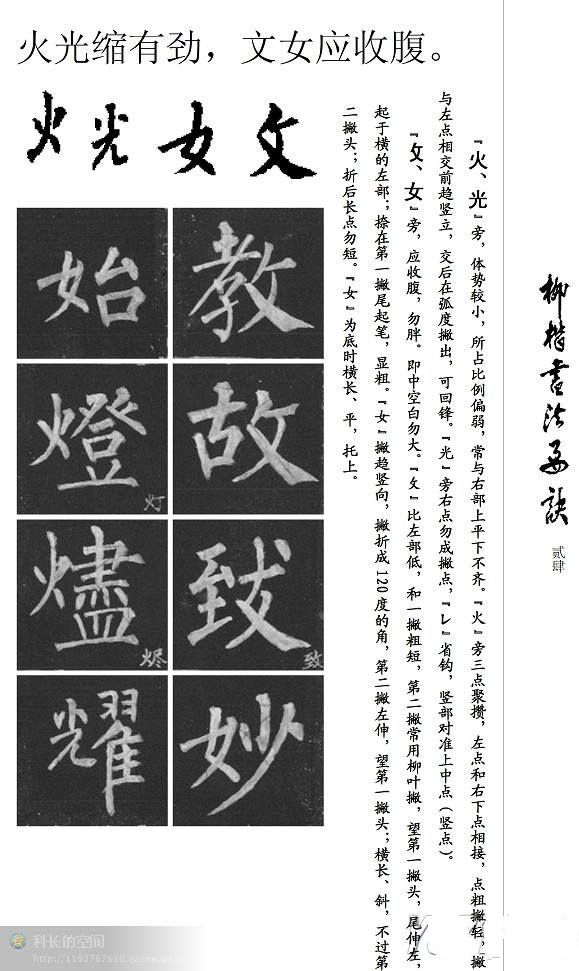 火光缩有劲，文女应收腹。
火 光 女 攵
始 教
燈 故
灯
燼 致
烬 致
耀 妙
『火、光』旁，体势较小，所占比例偏弱，常与右部上平下不齐。『火』旁三点聚攒，左点和右下点相接，点粗撇轻，撇
与左点相交前趋竖立，交后在弧度撇出，可回锋。『光』旁右点勿成撇点，『レ』省钩，竖部对准上中点（竖点）。
『攵、女』旁，应收腹，勿胖。即中空白勿大。『攵』比左部低，和一撇粗短，第二撇常用柳叶撇，望第一撇头，尾伸左，
起于横的左部；捺在第一撇尾起笔，显粗。『女』撇趋竖向，撇折成120度的角，第二撇左伸，望第一撇头；横长、斜，不过第
二撇头；折后长点勿短。『女』为底时横长、平，托上。
柳楷书法要诀
贰肆
科长的空间